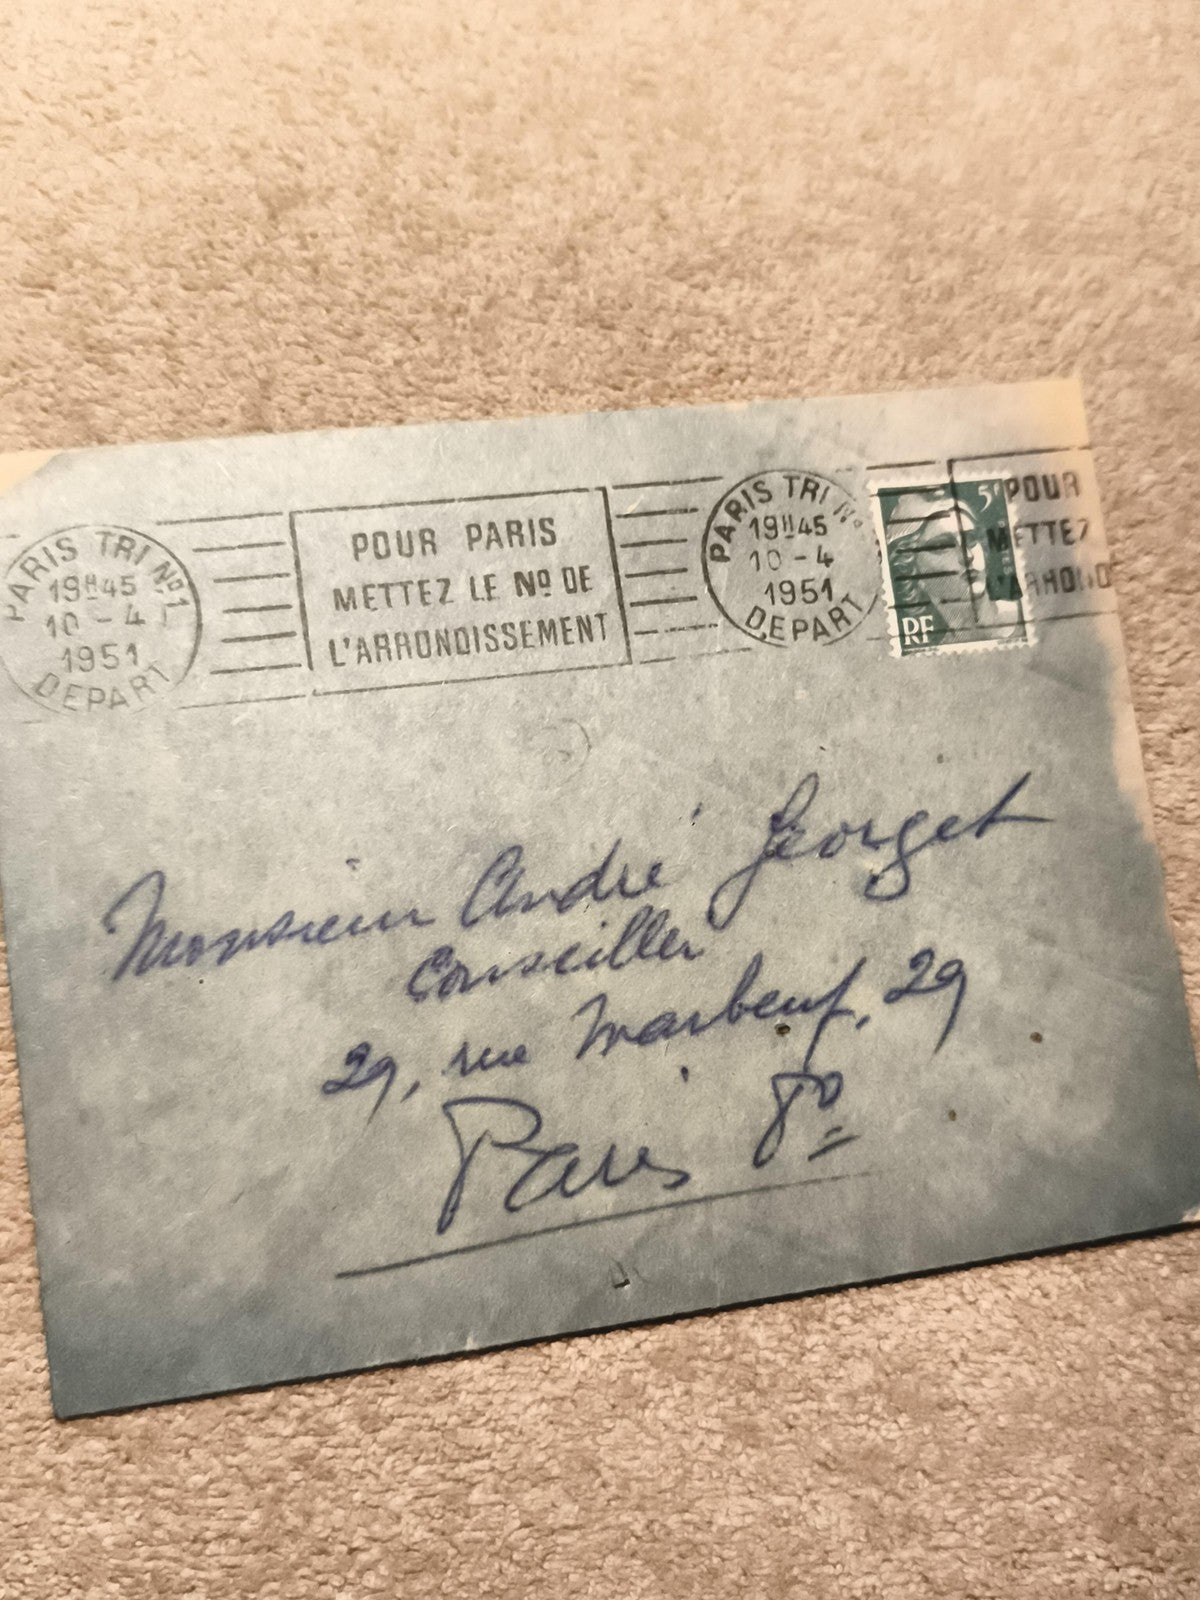 PARIS TRI Nº1
19H45
10 - 4
1951
DEPART
POUR PARIS
METTEZ LE Nº DE
L'ARRONDISSEMENT
PARIS TRI Nº
19H45
10 - 4
1951
DEPART
5F
RF
POUR
METTEZ
L'ARROND
Monsieur André Georget
Conseiller
29, rue Marbeuf, 29
Paris 8º